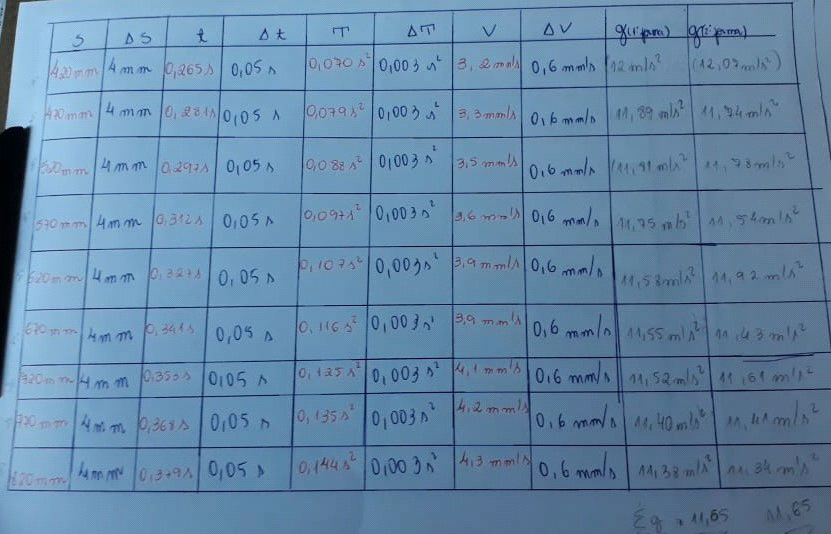 S ΔS t Δt T ΔT V ΔV g(1ª form) g(2ª form)
420mm 4mm 0,265s 0,05 s 0,070 s² 0,003 s² 3,2mm/s 0,6 mm/s 12 m/s² (12,07m/s²)
470mm 4mm 0,281s 0,05 s 0,079 s² 0,003 s² 3,3mm/s 0,6 mm/s 11,89 m/s² 11,74 m/s²
520mm 4mm 0,297s 0,05 s 0,088 s² 0,003 s² 3,5mm/s 0,6 mm/s 11,81 m/s² 11,78 m/s²
570mm 4mm 0,312s 0,05 s 0,097s² 0,003 s² 3,6 mm/s 0,6 mm/s 11,75 m/s² 11,54m/s²
620mm 4mm 0,327s 0,05 s 0,107s² 0,003s² 3,9 mm/s 0,6 mm/s 11,58m/s² 11,92 m/s²
670mm 4mm 0,341s 0,05 s 0,116 s² 0,003 s² 3,9 mm/s 0,6 mm/s 11,55m/s² 11,43 m/s²
720mm 4mm 0,353s 0,05 s 0,125 s² 0,003 s² 4,1 mm/s 0,6 mm/s 11,52m/s² 11,61 m/s²
770mm 4mm 0,368s 0,05 s 0,135s² 0,003s² 4,2mm/s 0,6 mm/s 11,40m/s² 11,41m/s²
820mm 4mm 0,379s 0,05 s 0,144s² 0,003 s² 4,3 mm/s 0,6 mm/s 11,38m/s² 11,34 m/s²
Σg = 11,65 11,65